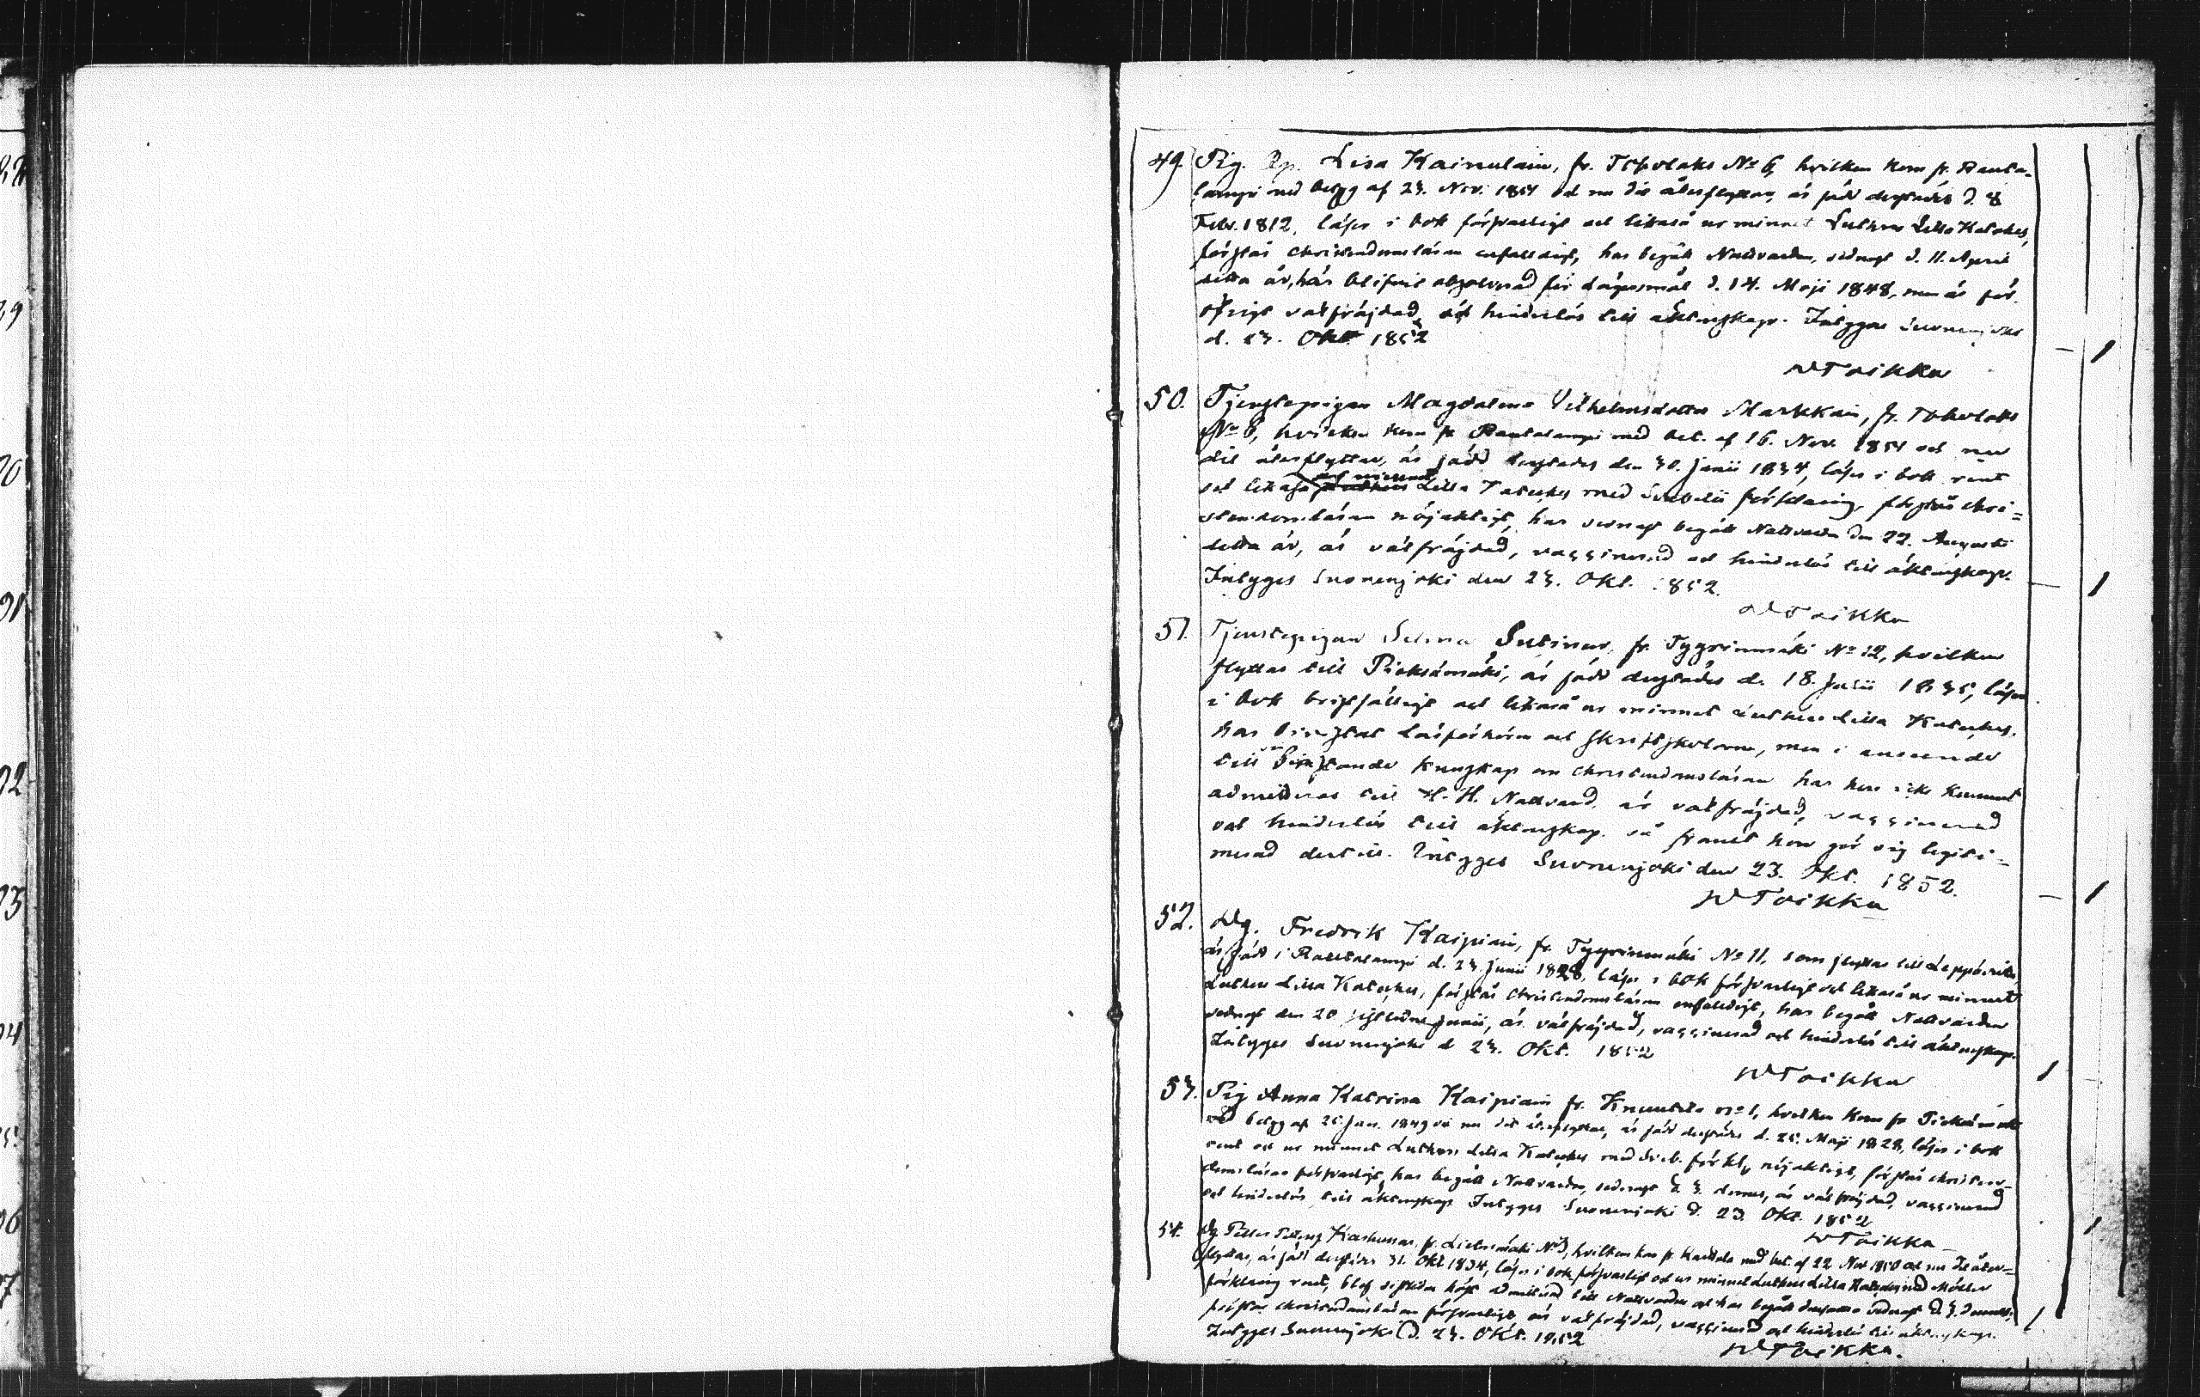 49. Pig. Lisa Kainulain, fr. Toholaks No 6, hvilken kom fr. Rauta-
lampi med betyg af 23. Nov. 1851 och nu dit återflyttar, är född dersstädes d. 8
Febr. 1812, läser i bok försvarligt och likaså ur minnet Luthers Lilla Katekes,
förstår christendomsläran enfaldigt, har begått Nattvarden, sednast d. 11. April
detta år, har blifvit absolverad för lägersmål d. 14. Maji 1848, men är för
öfrigt välfräjdad, och hinderlös till äktenskap. Intygar Suonenjoki
d. 23. Okt. 1852
W Toikka
— 1
50. Tjenstepigan Magdalena Vilhelmsdotter Markkain, fr. Toholaks
No 6, hvilken kom fr Rautalampi med bet. af 16. Nov. 1851 och nu
dit återflyttar, är född dersstädes den 30. Junii 1834, läser i bok rent
och likaså ur minnet Lilla Katekes med Svebelii förklaring, förstår chri=
stendomsläran nöjaktigt, har sednast begått Nattvarden den 22. Augusti
detta år, är välfräjdad, vaccinerad och hinderlös till äktenskap.
Intyges Suonenjoki den 23. Okt. 1852.
W Toikka
— 1
51. Tjenstepigan Selma Sutinen, fr. Tyyrinmäki No 12, hvilken
flyttar till Pieksämäki, är född dersstädes d. 18. Julii 1835, läser
i bok bristfälligt och likaså ur minnet Luthers Lilla Katekes,
har bivistat läsförhören och skriftskolorna, men i anseende
till bristande kunskap om christendomsläran har hon icke kunnat
admitteras till H. H. Nattvard, är välfräjdad, vaccinerad
och hinderlös till äktenskap, så framt hon gör sig legiti=
merad dertill. Intyges Suonenjoki den 23. Okt. 1852.
W Toikka
— 1
52. Dg. Fredrik Kaipiain, fr. Tyyrinmäki No 11, som flyttar till Leppävirta,
är född i Rautalampi d. 23. Junii 1828, läser i bok försvarligt och likaså ur minnet
Luthers Lilla Katekes, förstår christendomsläran enfaldigt, har begått Nattvarden
sednast den 20 sistledne Junii, är välfräjdad, vaccinerad och hinderlös till äktenskap.
Intyges Suonenjoki d 23. Okt. 1852
W Toikka
1 —
53. Pig Anna Katrina Kaipiain fr. Kmuutila No 1, hvilken kom fr Pieksämäki
betyg af 25 Jan. 1849 och nu dit återflyttar, är född dersstädes d. 25. Maji 1828, läser i bok
rent och ur minnet Luthers Lilla Katekes med Sveb. förkl. nöjaktigt, förstår christen-
domsläran försvarligt, har begått Nattvarden, sednast d. 3. dennes, är välfräjdad, vaccinerad
och hinderlös till äktenskap Intyges Suonenjoki d. 23. Okt. 1852
W Toikka
— 1
54. Dg Petter Karhunen, fr. Lietemäki No 3, hvilken kom fr Karttula med bet. af 22 Nov 1850 och nu dit åter=
flyttar, är född dersstädes 31. Okt 1834, läser i bok försvarligt och ur minnet Luthers Lilla Katekes med
förklaring rent, blef sistleden höst admitterad till Nattvarden och har begått densamma sednast d. 3. dennes,
förstår christendomsläran försvarligt, är välfräjdad, vaccinerad och hinderlös till äktenskap.
Intyges Suonenjoki d. 23. Okt. 1852
W Toikka.
1